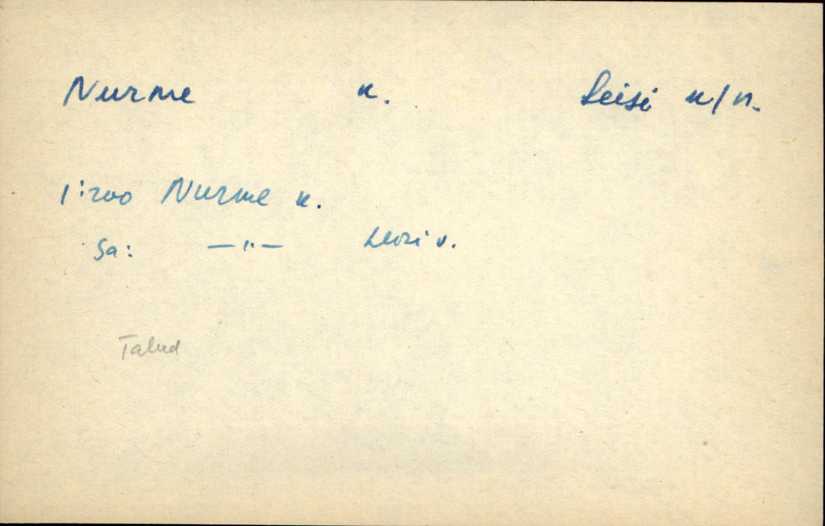 Nurme k. Leisi k/n.
1:200 Nurme k.
Sa: —"— Leisi v.
Talud